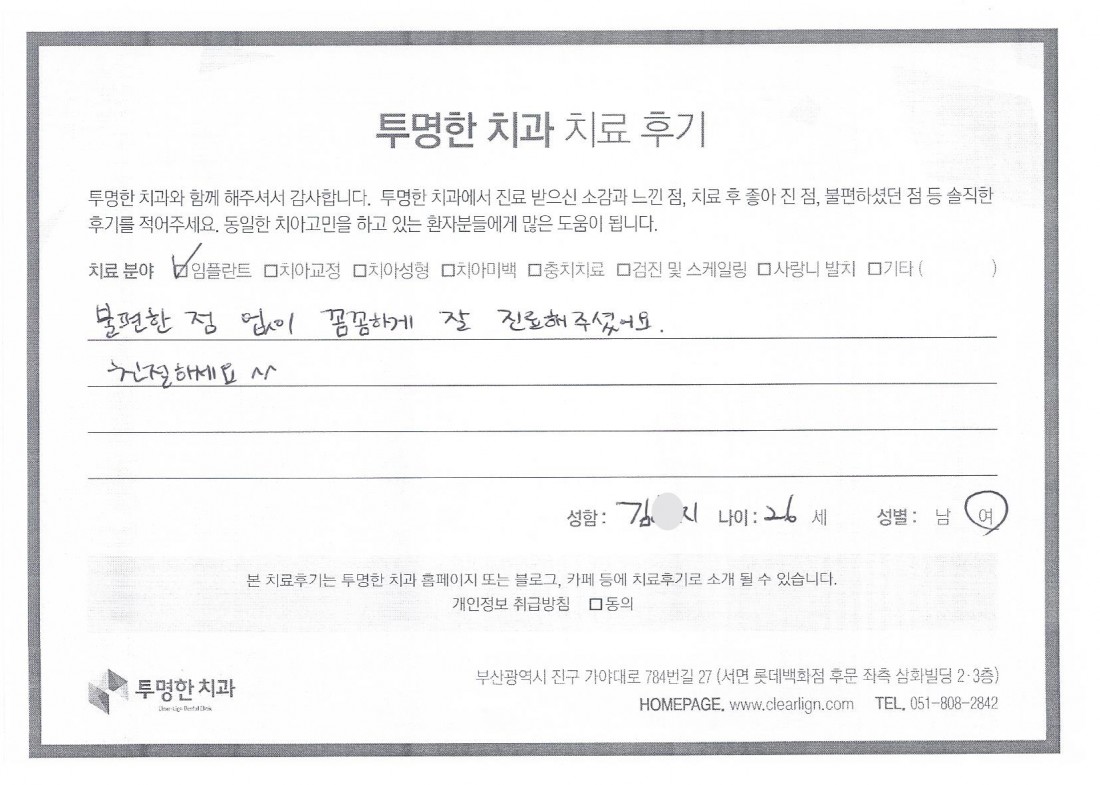 투명한 치과 치료 후기
투명한 치과와 함께 해주셔서 감사합니다. 투명한 치과에서 진료 받으신 소감과 느낀 점, 치료 후 좋아 진 점, 불편하셨던 점 등 솔직한
후기를 적어주세요. 동일한 치아고민을 하고 있는 환자분들에게 많은 도움이 됩니다.
치료 분야 ☑임플란트 □치아교정 □치아성형 □치아미백 □충치치료 □검진 및 스케일링 □사랑니 발치 □기타 ( )
불편한 점 없이 꼼꼼하게 잘 진료해주셨어요.
친절하세요 ^^
성함 : 김 지 나이 : 26 세 성별 : 남 여
본 치료후기는 투명한 치과 홈페이지 또는 블로그, 카페 등에 치료후기로 소개 될 수 있습니다.
개인정보 취급방침 □동의
투명한 치과
부산광역시 진구 가야대로 784번길 27 (서면 롯데백화점 후문 좌측 삼화빌딩 2·3층)
HOMEPAGE. www.clearlign.com TEL. 051-808-2842